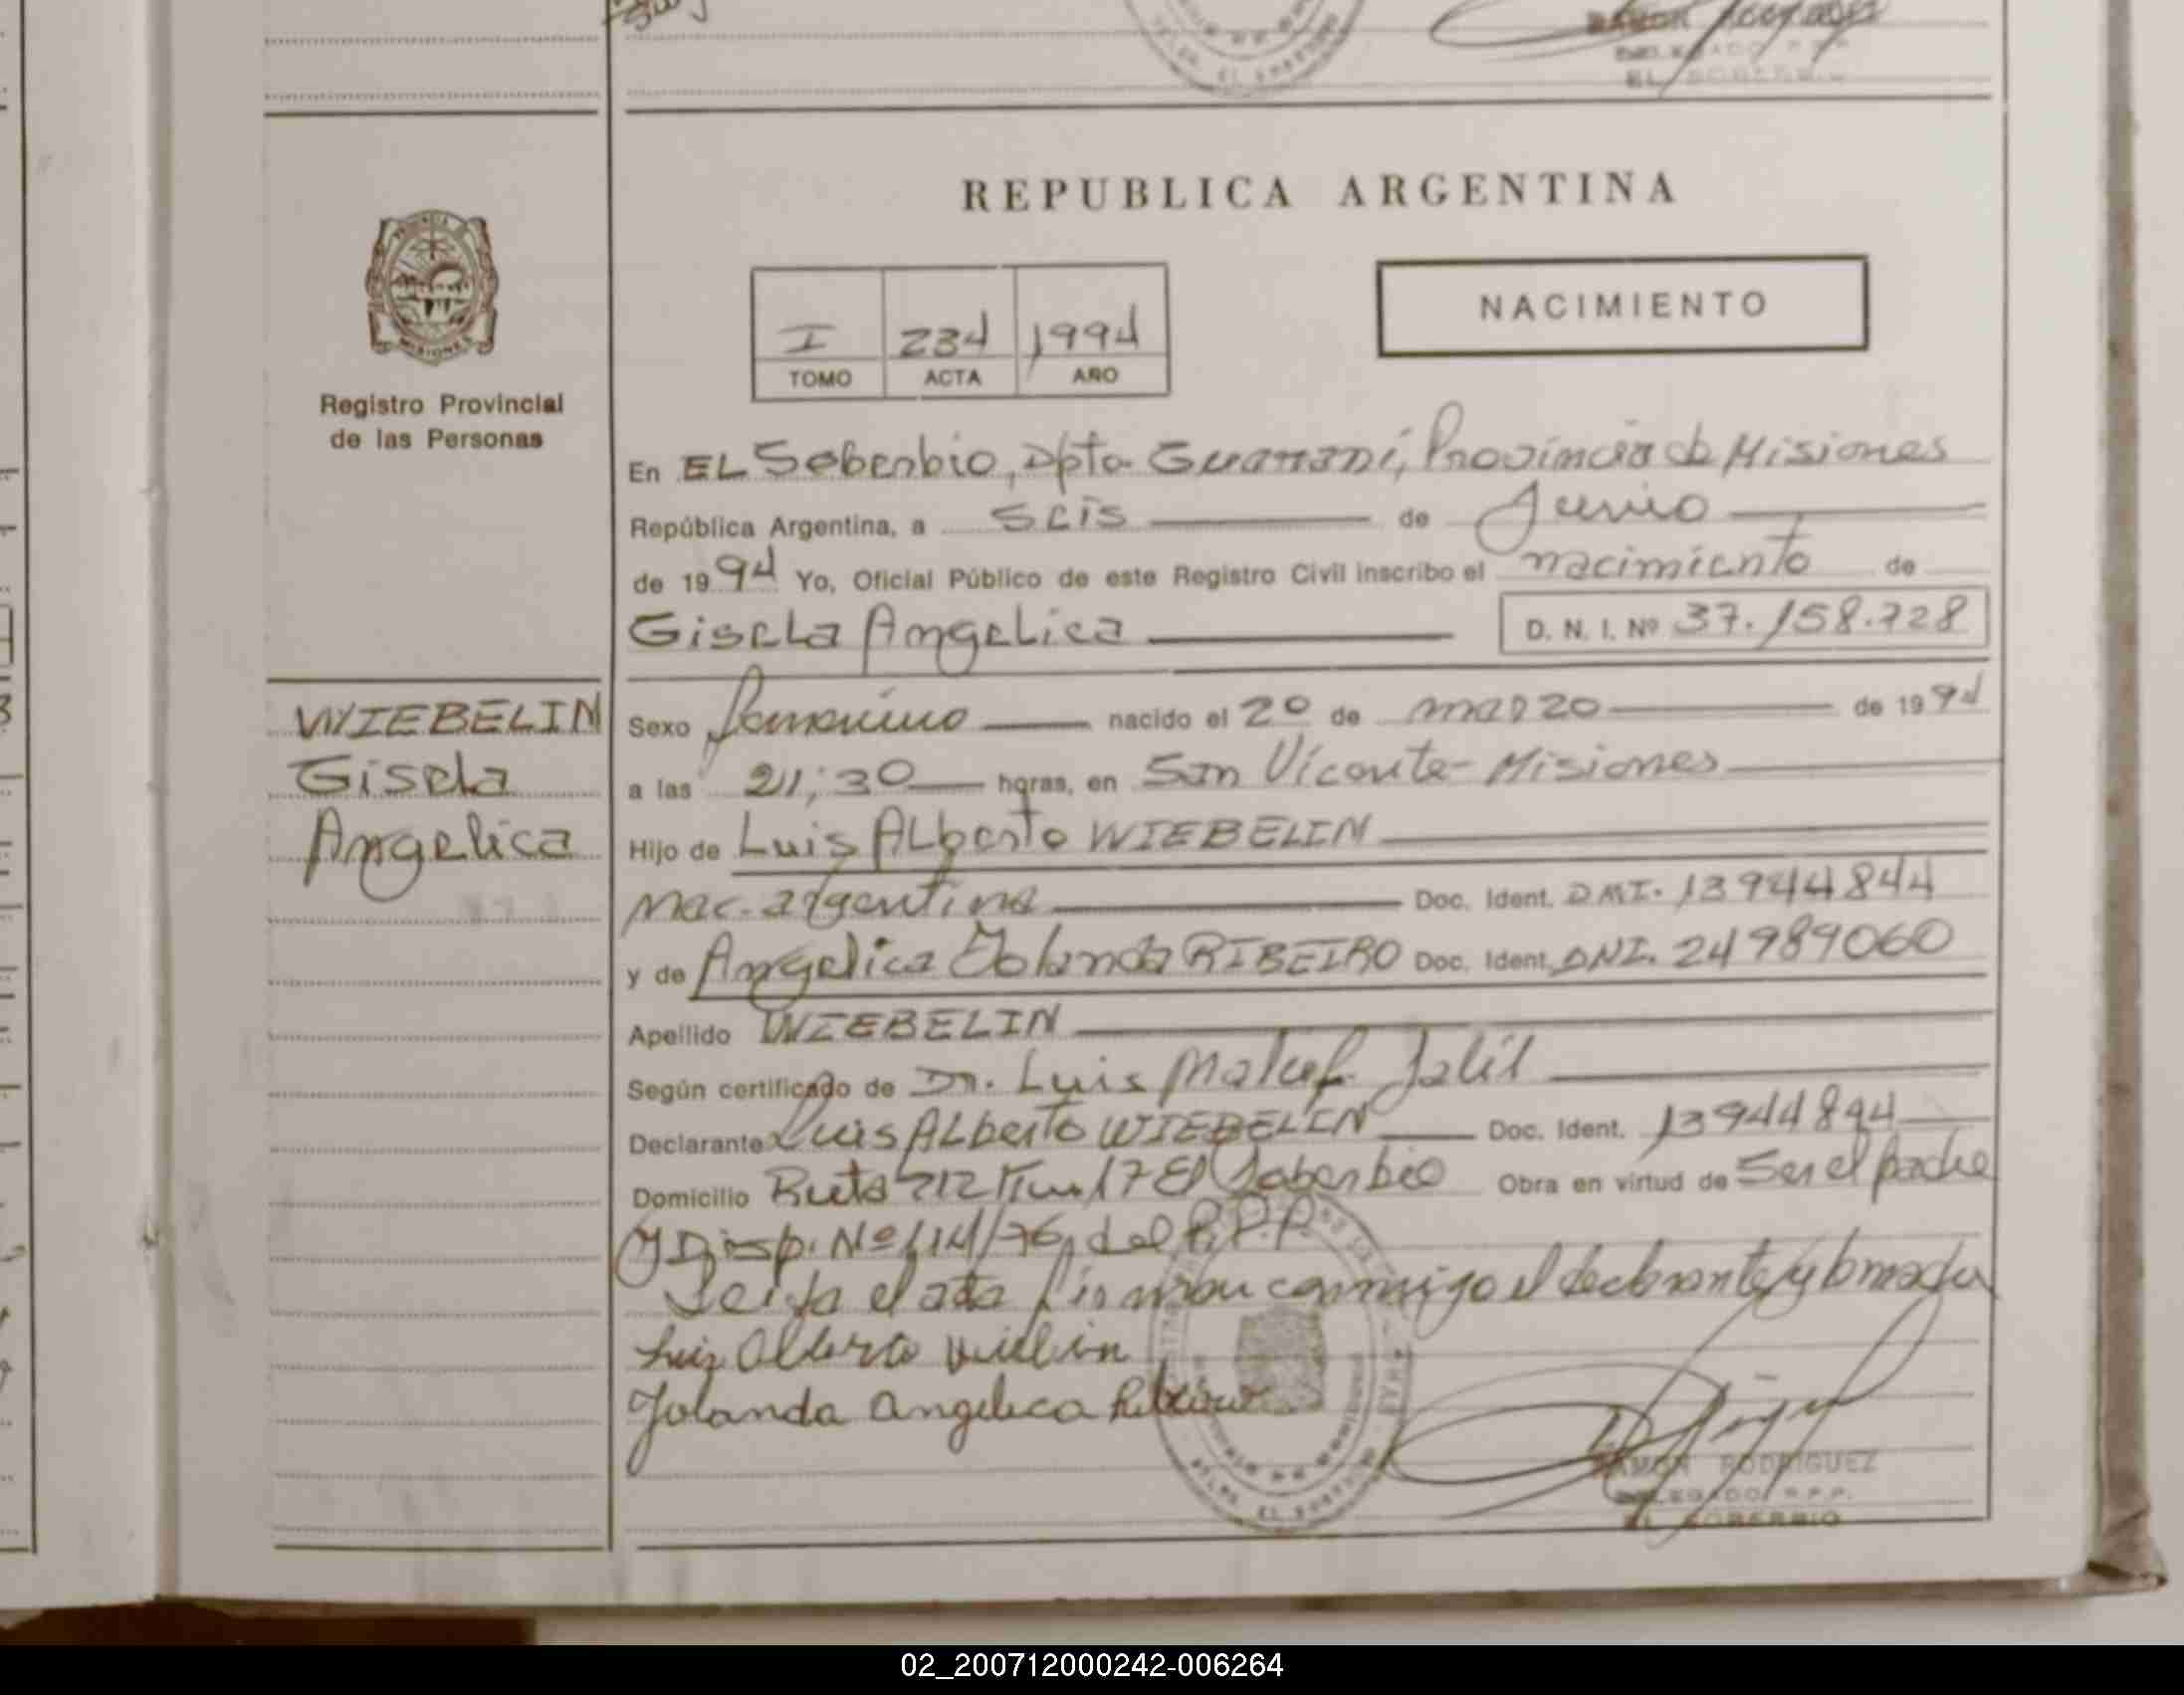 REPUBLICA ARGENTINA
PROVINCIA
MISIONES
Registro Provincial
de las Personas
I 234 1994
TOMO ACTA AÑO
NACIMIENTO
En EL Soberbio, Dpto. Guaraní, Provincia de Misiones
República Argentina, a seis de Junio
de 1994 Yo, Oficial Público de este Registro Civil inscribo el nacimiento de
Gisela Angelica D. N. I. Nº 37.158.728
WIEBELIN
Gisela
Angelica
Sexo femenino nacido el 20 de marzo de 1994
a las 21;30 horas, en San Vicente - Misiones
Hijo de Luis ALberto WIEBELIN
nac. argentina Doc. Ident. DNI. 13944844
y de Angelica Yolanda RIBEIRO Doc. Ident. DNI. 24989060
Apellido WIEBELIN
Según certificado de Dr. Luis Maluf Jalil
Declarante Luis ALberto WIEBELIN Doc. Ident. 13944844
Domicilio Ruta 212 Km 17 El Soberbio Obra en virtud de Ser el padre
y Disp. Nº 114/76 del R.P.P.
Leida el acta firman conmigo el declarante y la madre
Luiz Alberto
Yolanda Angelica Ribeiro
EL SOBERBIO
RAMON RODRIGUEZ
DELEGADO R.P.P.
EL SOBERBIO
02_200712000242-006264